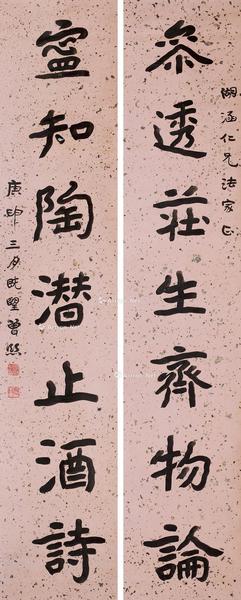 湖涵仁兄法家正
參透莊生齊物論
寧知陶潛止酒詩
庚申三月既望曾熙